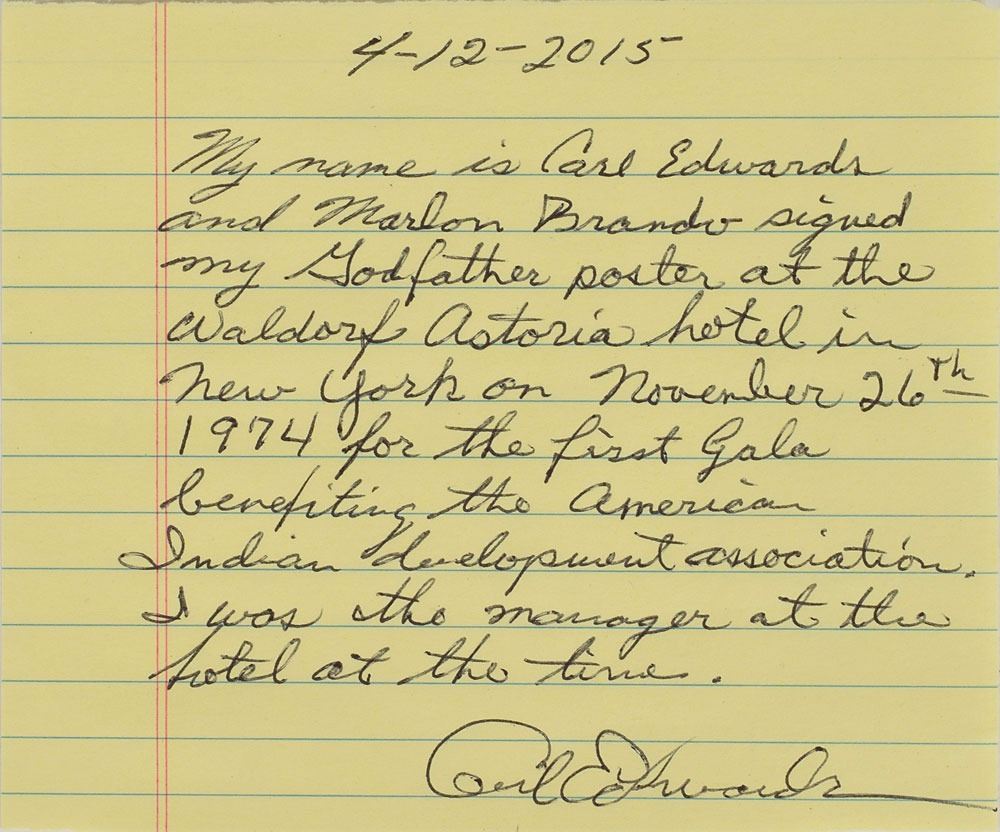 4-12-2015
My name is Carl Edwards
and Marlon Brando signed
my Godfather poster at the
Waldorf Astoria hotel in
New York on November 26th
1974 for the first Gala
benefiting the American
Indian development association.
I was the manager at the
hotel at the time.
Carl Edwards